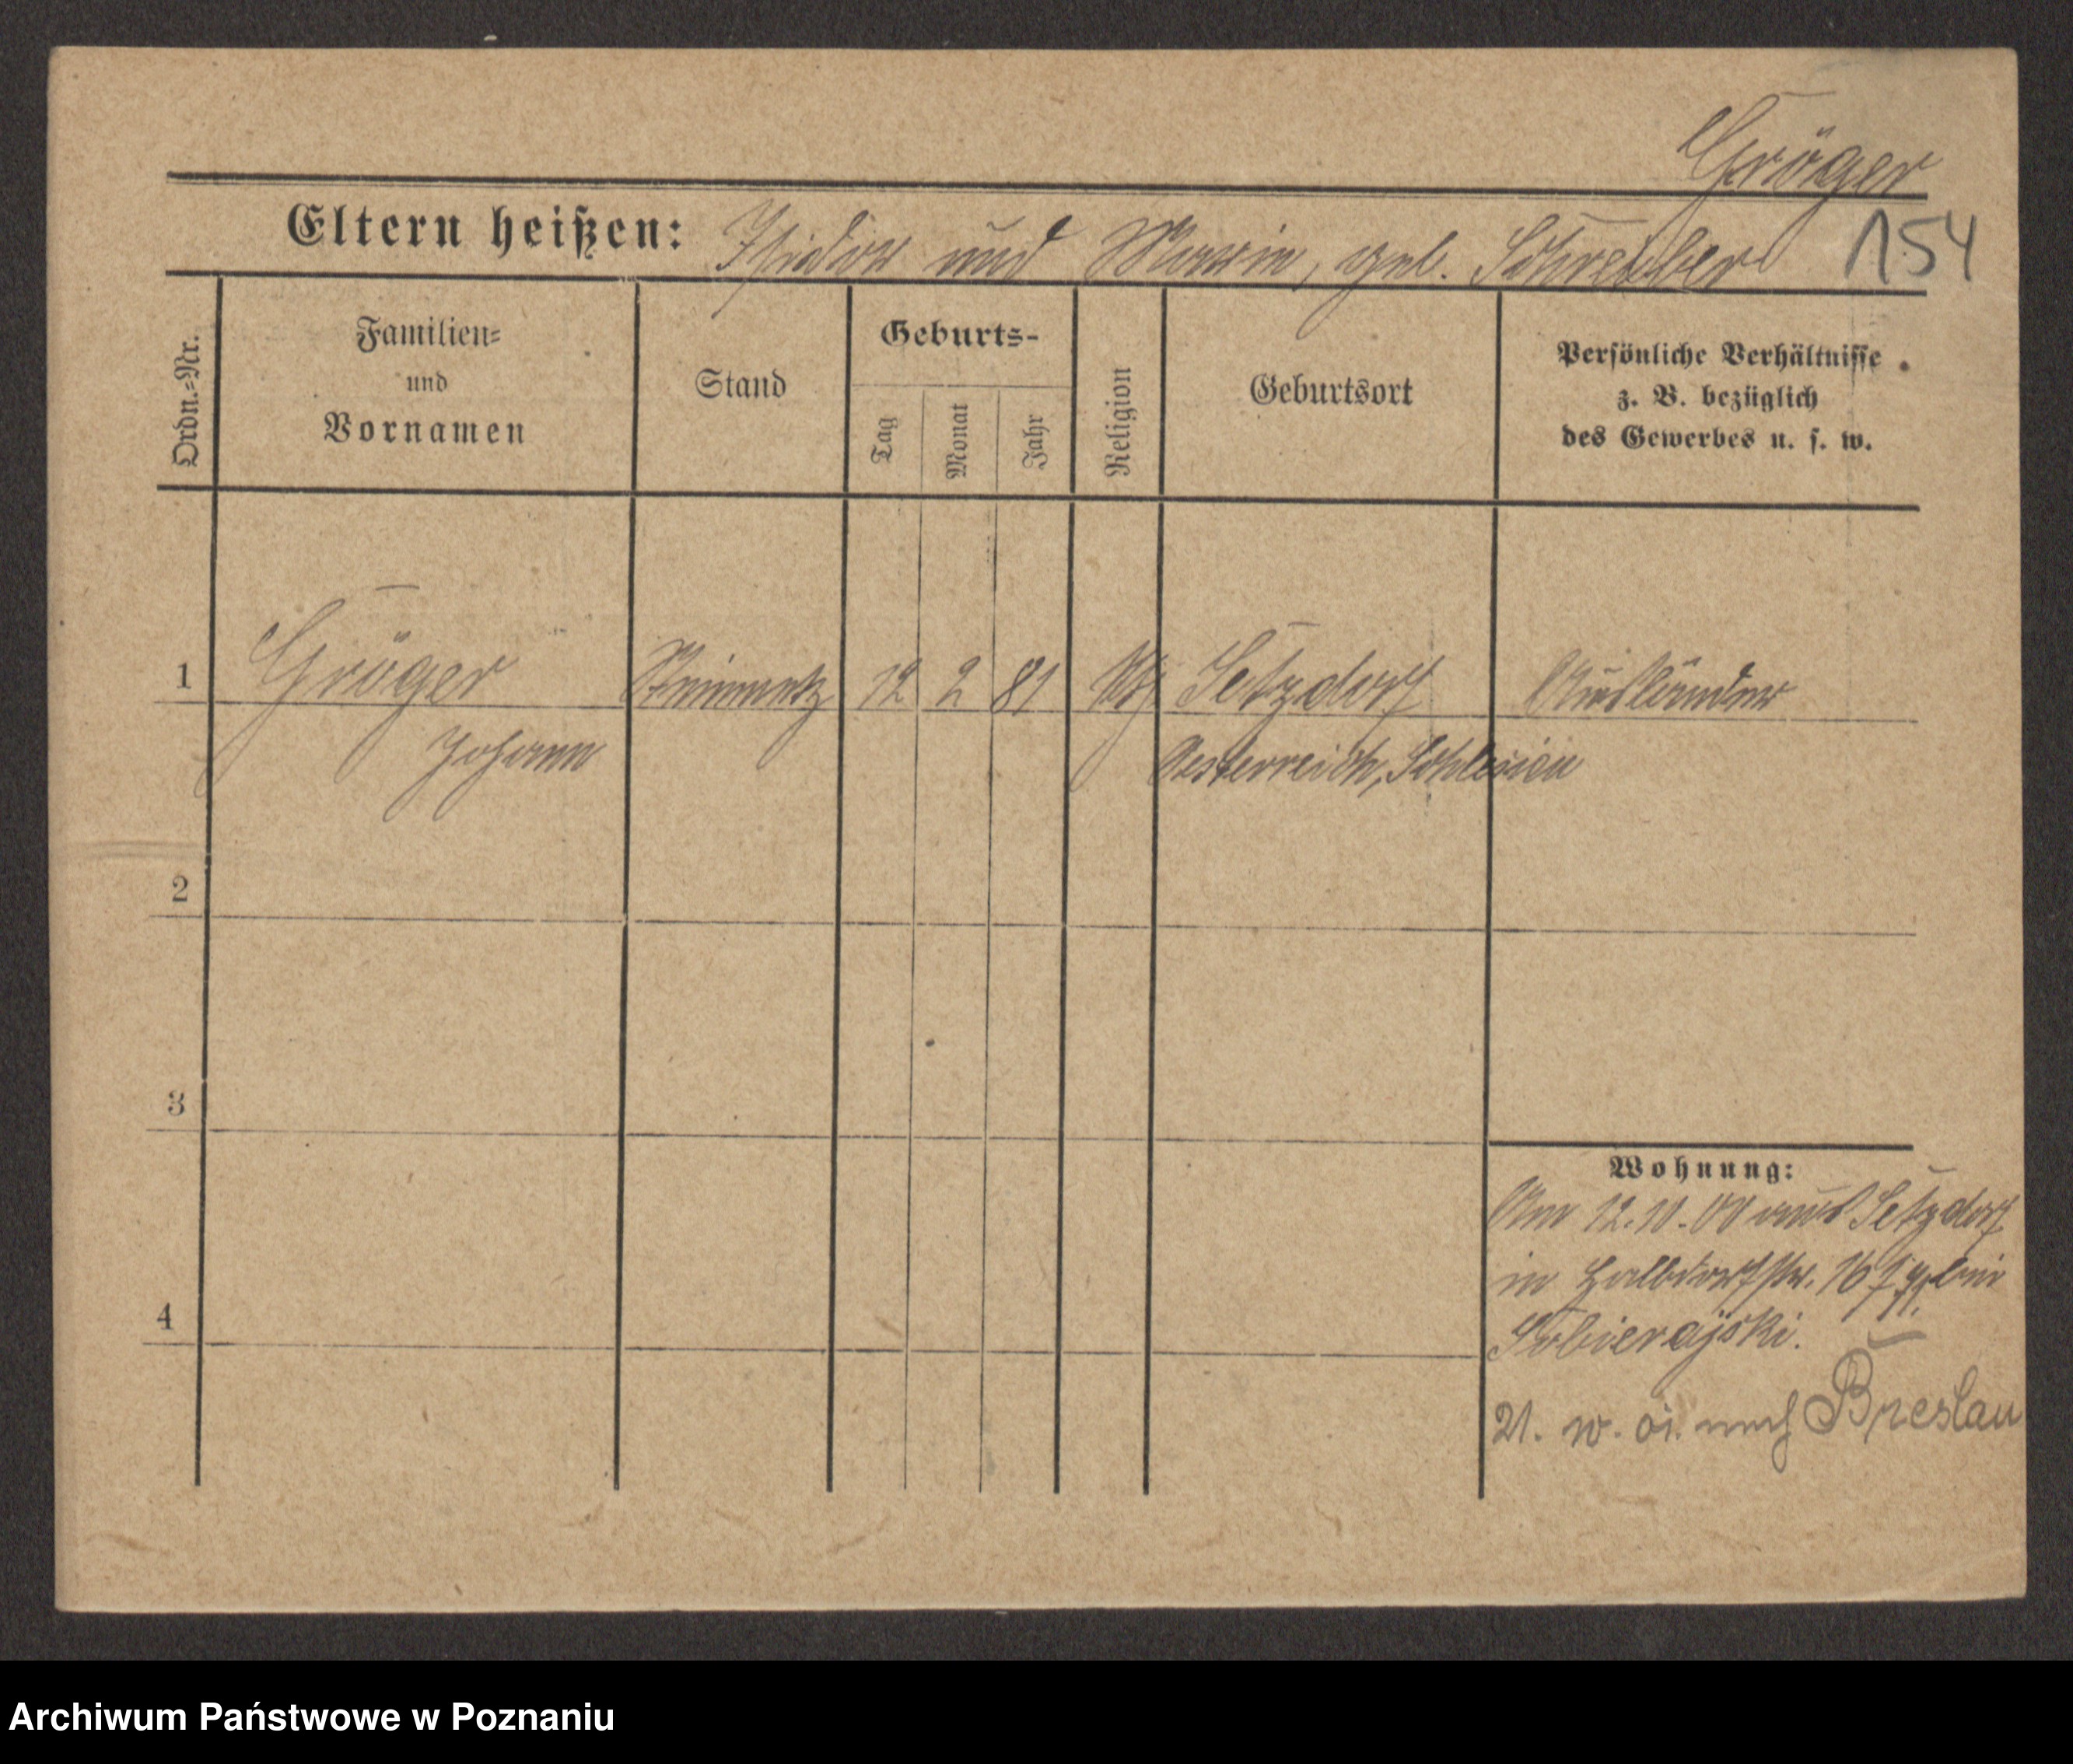 Gröger
Eltern heißen: Isidor und Marie, geb. Schreiber 154
Ordn.=Nr.
Familien=
und
Vornamen
Stand
Geburts-
Tag
Monat
Jahr
Religion
Geburtsort
Persönliche Verhältnisse
z. B. bezüglich
des Gewerbes u. s. w.
1 Gröger Steinmetz 12 2 81 Kth Setzdorf Ausländer
Johann Oesterreich, Schlesien
2
3
4
Wohnung:
Am 12.10.00 aus Setzdorf
in Halbdorfstr. 16 bei
Sobierajski.
21. w. 01. nach Breslau
Archiwum Państwowe w Poznaniu